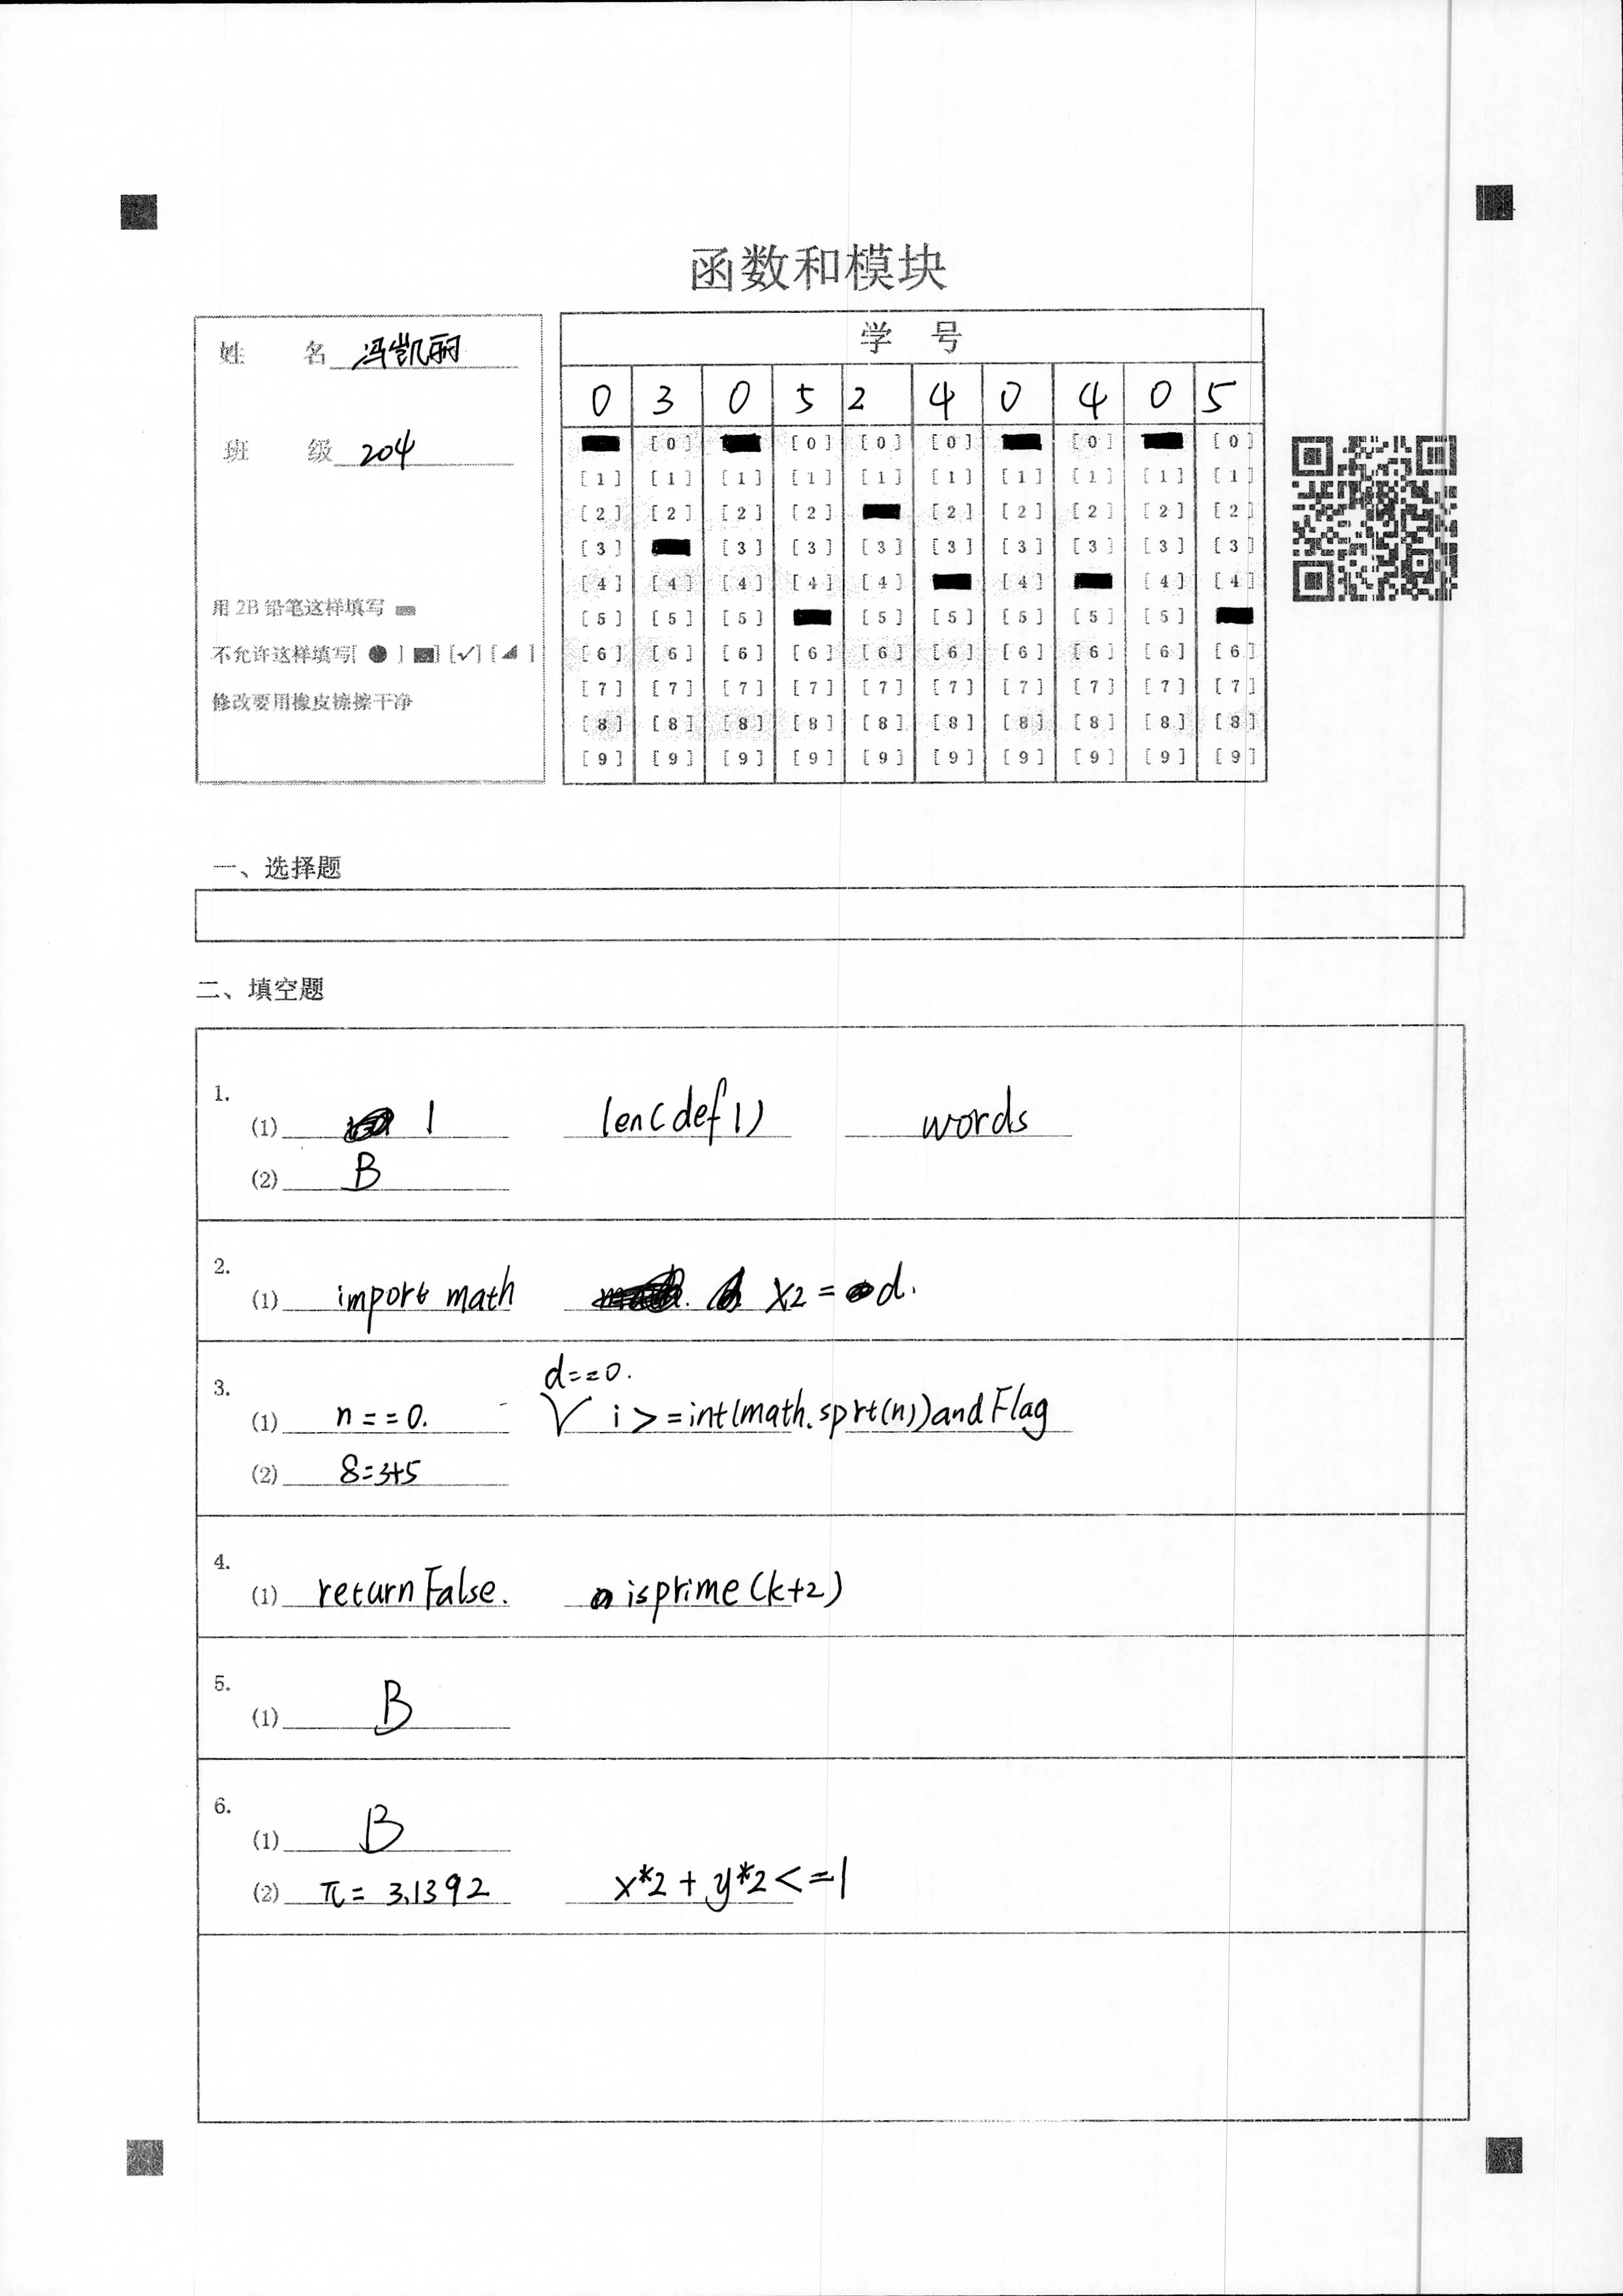 函数和模块
姓 名 冯凯丽
班 级 204
用 2B 铅笔这样填写
不允许这样填写[ ● ] [■] [✓] [◢ ]
修改要用橡皮擦擦干净
学 号
0 3 0 5 2 4 0 4 0 5
[0] [0] [0] [0] [0] [0]
[1] [1] [1] [1] [1] [1] [1] [1] [1] [1]
[2] [2] [2] [2] [2] [2] [2] [2] [2]
[3] [3] [3] [3] [3] [3] [3] [3] [3]
[4] [4] [4] [4] [4] [4] [4] [4]
[5] [5] [5] [5] [5] [5] [5] [5]
[6] [6] [6] [6] [6] [6] [6] [6] [6] [6]
[7] [7] [7] [7] [7] [7] [7] [7] [7] [7]
[8] [8] [8] [8] [8] [8] [8] [8] [8] [8]
[9] [9] [9] [9] [9] [9] [9] [9] [9] [9]
一、选择题
二、填空题
1.
(1) 1 len(def1) words
(2) B
2.
(1) import math x2=d.
3.
d==0.
(1) n==0. i>=int(math.sprt(n))and Flag
(2) 8=3+5
4.
(1) return False. isprime(k+2)
5.
(1) B
6.
(1) B
(2) π=3.1392 x*2+y*2<=1